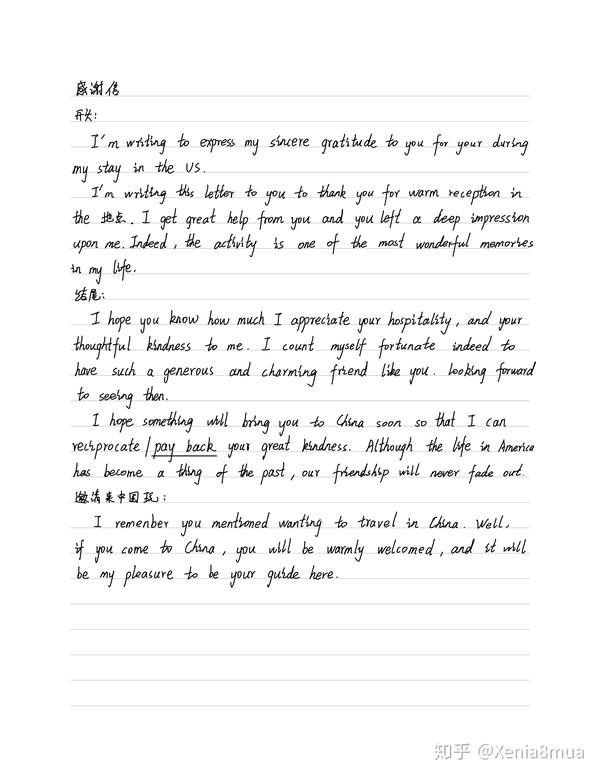 感谢信
开头:
I'm writing to express my sincere gratitude to you for your during
my stay in the US.
I'm writing this letter to you to thank you for warm reception in
the 地点. I get great help from you and you left a deep impression
upon me. Indeed, the activity is one of the most wonderful memories
in my life.
结尾:
I hope you know how much I appreciate your hospitality, and your
thoughtful kindness to me. I count myself fortunate indeed to
have such a generous and charming friend like you. Looking forward
to seeing then.
I hope something will bring you to China soon so that I can
reciprocate/pay back your great kindness. Although the life in America
has become a thing of the past, our friendship will never fade out.
邀请来中国玩:
I remenber you mentioned wanting to travel in China. Well,
if you come to China, you will be warmly welcomed, and it will
be my pleasure to be your guide here.
知乎 @Xenia8mua